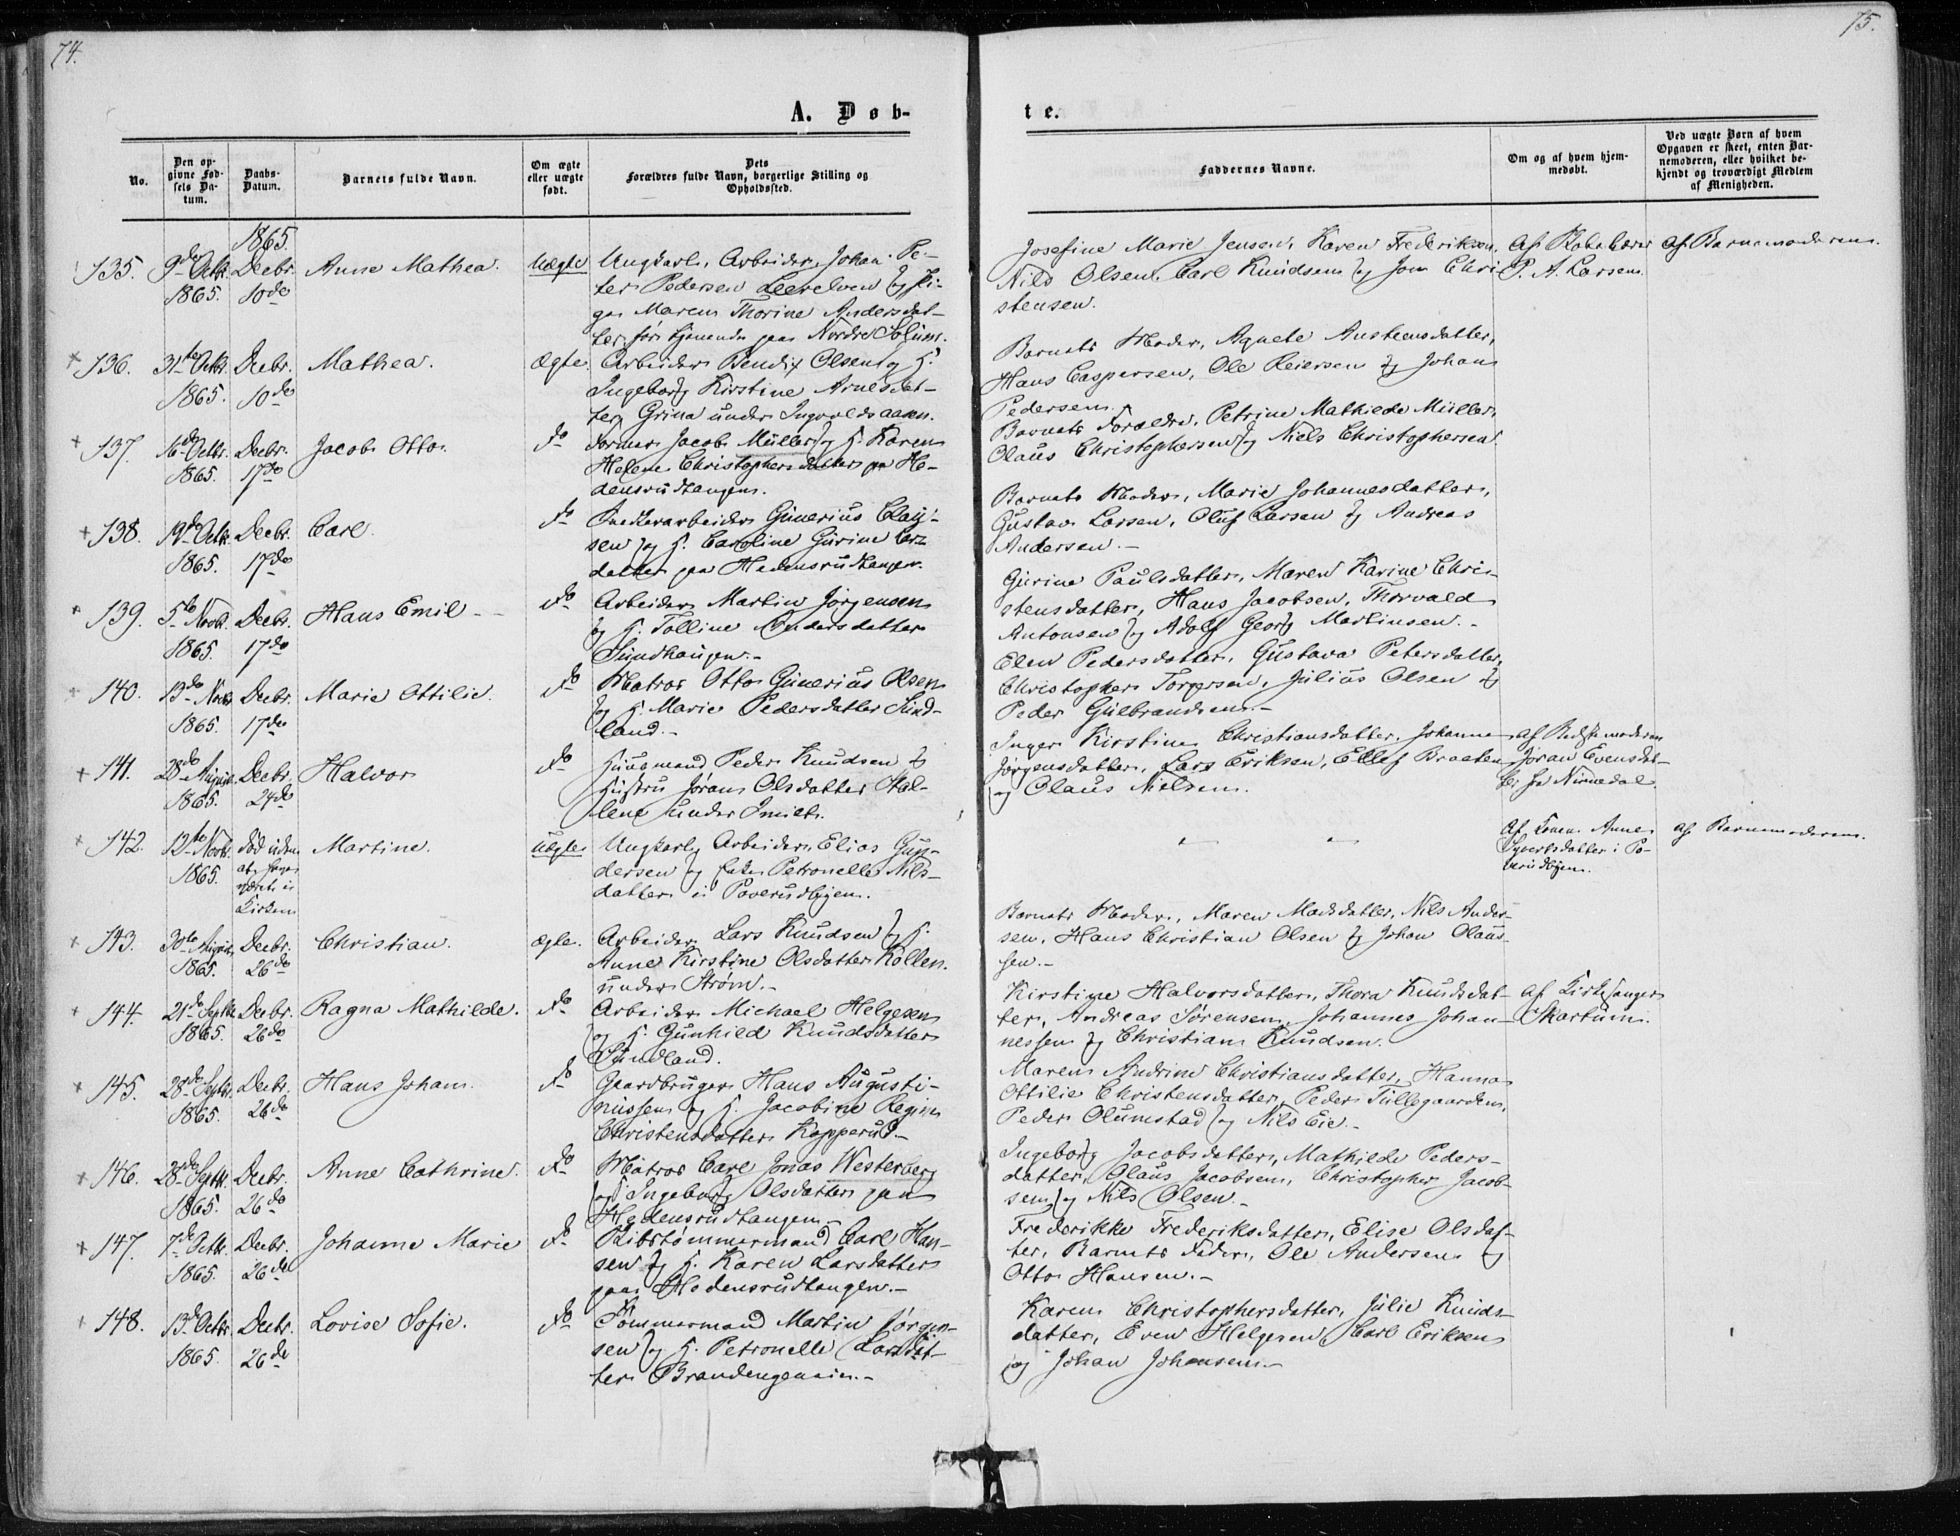 74.
75.
A. Døb-
te.
No.
Den op-
givne Fød-
sels Da-
tum.
Daabs-
Datum.
Barnets fulde Navn.
Om ægte
eller uægte
født.
Dets
Forældres fulde Navn, borgerlige Stilling og
Opholdssted.
Faddernes Navne.
Om og af hvem hjem-
medøbt.
Ved uægte Børn af hvem
Opgaven er skeet, enten Bar-
nemoderen, eller hvilket be-
kjendt og troværdigt Medlem
af Menigheden.
1865.
135.
9de Octb.
1865.
Decbr.
10de
Anne Mathea.
Uægte
Ungkarl, Arbeider Johan Pe-
ter Pedersen og Pi-
ge Maren Thorine Andersdat-
ter, før tjenende paa Nordre Solum.
Josefine Marie Jensen, Karen Frederiksen,
Nils Olsen, Carl Knudsen og Jon Chri-
stensen.
Af
P. A. Larsen.
af Barnemoderen.
136.
31te Octb.
1865.
Decbr.
10de
Mathea.
Ægte.
Arbeider Bendix Olsen og H.
Ingeborg Kirstine Arnesdat-
ter, Grina under Ingvoldsaasen.
Barnets Moder, Agnete Austensdatter,
Hans Caspersen, Ole Reiersen og Johan
Pedersen.
137.
16de Octbr.
1865.
Decbr.
17de
Jacob Otto.
do
Former Jacob Müller og H. Karen
Helene Christophersdatter paa He-
densrudtangen.
Barnets Forældre, Petrine Mathilde Müller,
Claus Christophersen og Niels Christophersen.
138.
19de Octb.
1865.
Decbr.
17de
Carl.
do
Snedkerarbeider Gunerius Clau-
sen og H. Caroline Gurine
datter paa Hedensrudtangen.
Barnets Moder, Marie Johannesdatter,
Gustav Larsen, Oluf Larsen og Andreas
Andersen.
139.
5te Novb.
1865.
Decbr.
17de
Hans Emil
do
Arbeider Martin Jørgensen
og H. Tolline Andersdatter
Sundhaugen.
Gurine Paulsdatter, Maren Karine Chri-
stensdatter, Hans Jacobsen, Thorvald
Antonsen og Adolf Georg Martinsen.
140.
13de Novb.
1865.
Decbr.
17de
Marie Ottilie.
do
Matros Otto Gunerius Olsen
og H. Marie Pedersdatter Sund-
land.
Elen Pedersdatter, Gustava Petersdatter,
Christopher Torgersen, Julius Olsen og
Peder Gulbrandsen.
141.
28de August
1865.
Decbr.
24de
Halvor
do
Huusmand Peder Knudsen og
Hustru Jøran Olsdatter Hal-
lene under Smith.
Inger Kirstine Christiansdatter, Johanne
Jørgensdatter, Lars Eriksen, Ellef Braaten
og Claus Nielsen.
af Bedstemoderen
Jøran Evensdat-
ter fra Nummedal.
142.
12te Novb.
1865.
død uden
at have
været i
Kirken
Martine.
Uægte
Ungkarl, Arbeider Elias Gun-
dersen og Enke Petronelle Nils-
datter i Poverudbyen.
Af Konen Anne
Syvertsdatter i Po-
verudbyen.
af Barnemoderen.
143.
30te August
1865.
Decbr.
26de
Christian.
ægte.
Arbeider Lars Knudsen og H.
Anne Kirstine Olsdatter Kollen
under Strøm.
Barnets Moder, Maren Madsdatter, Nils Ander-
sen, Hans Christian Olsen og Johan Claus-
sen.
144.
21de Septb.
1865.
Decbr.
26de
Ragna Mathilde.
do
Arbeider Michael Helgesen
og H. Gunhild Knudsdatter
Sundland.
Kirstine Halvorsdatter, Thora Knudsdat-
ter, Andreas Sørensen, Johannes Johan-
nessen og Christian Knudsen.
af Kirkesanger
Skartum.
145.
28de Septbr.
1865.
Decbr.
26de
Hans Johan.
do
Gaardbruger Hans Augusti-
nussen og H. Jacobine Regine
Christensdatter Kopperud.
Maren Andrine Christiansdatter, Hanna
Ottilie Christensdatter, Peder Tullegaarden,
Peder Olumstad og Nils Eie.
146.
28de Septb.
1865.
Decbr.
26de
Anne Cathrine.
do
Matros Carl Jonas Westerberg
og H. Ingeborg Olsdatter paa
Hedensrudtangen.
Ingeborg Jacobsdatter, Mathilde Peders-
datter, Claus Jacobsen, Christopher Jacob-
sen og Nils Olsen.
147.
7de Octb.
1865.
Decbr.
26de
Johanne Marie
do
Skibstømmermand Carl Han-
sen og H. Karen Larsdatter
paa Hedensrudtangen.
Frederikke Frederiksdatter, Elise Olsdat-
ter, Barnets Fader, Ole Andersen og
Otto Hansen.
148.
13de Octb.
1865.
Decbr.
26de
Lovise Sofie.
do
Tømmermand Martin Jørgen-
sen og H. Petronelle Larsdat-
ter Brandengeneie.
Karen Christophersdatter, Julie Knuds-
datter, Even Helgesen, Carl Eriksen
og Johan Johansen.